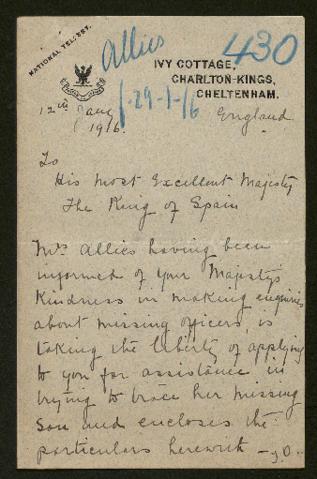 NATIONAL TEL:
Allies
430
IVY COTTAGE,
CHARLTON-KINGS,
CHELTENHAM.
29-1-16
12th
1916.
England
To
His Most Excellent Majesty
The King of Spain
Mrs Allies having been
informed of your Majestys
Kindness in making enquiries
about missing officers, is
taking the liberty of applying
to you for assistance in
trying to trace her missing
son and encloses the
particulars herewith